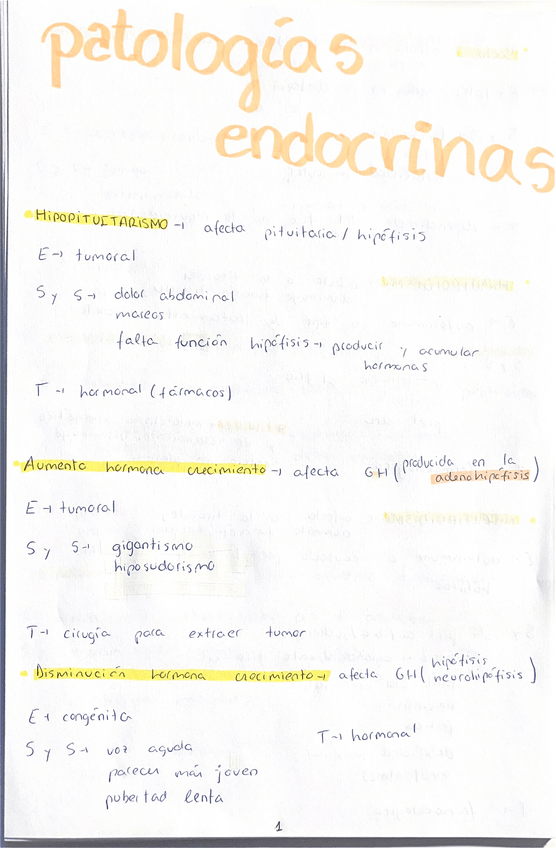 patologías
endocrinas
HIPOPITUITARISMO → afecta pituitaria / hipófisis
E → tumoral
S y S → dolor abdominal
mareos
falta función hipófisis → producir y acumular
hormonas
T → hormonal (fármacos)
Aumento hormona crecimiento → afecta GH (producida en la
adenohipófisis)
E → tumoral
S y S → gigantismo
hiposudorismo
T → cirugía para extraer tumor
Disminución hormona crecimiento → afecta GH (hipófisis
neurohipófisis)
E → congénita
S y S → voz aguda
parecer más joven
pubertad lenta
T → hormonal
1